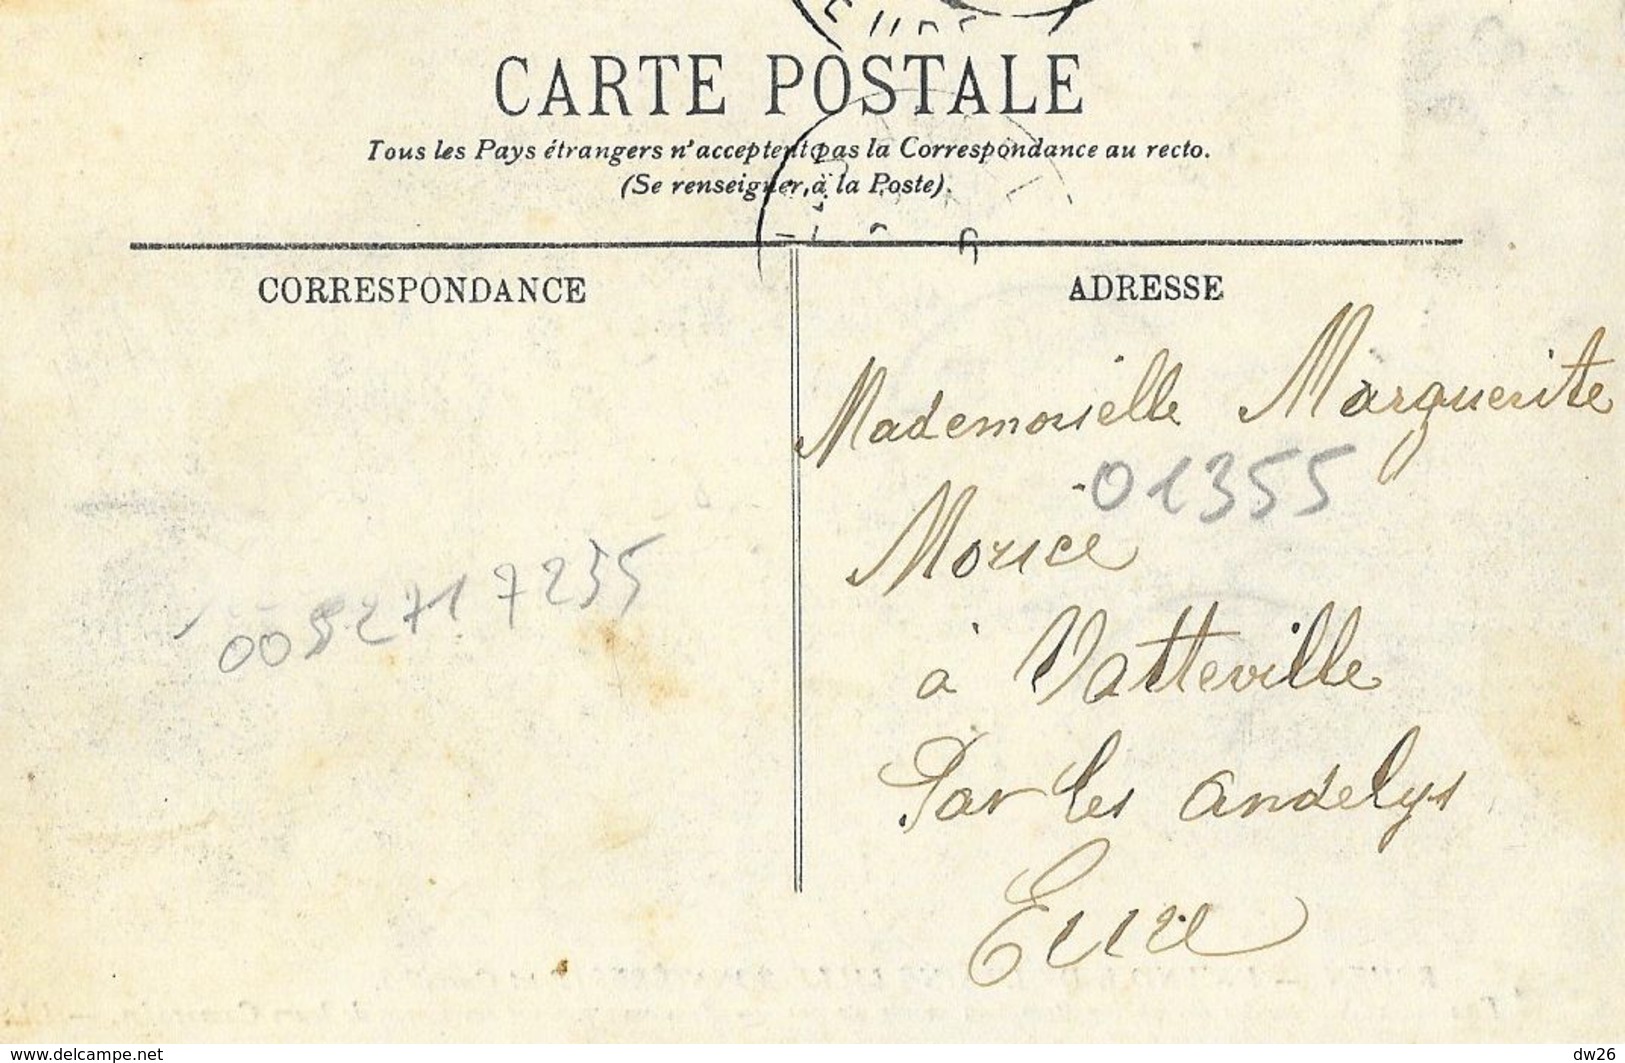 CARTE POSTALE
Tous les Pays étrangers n'acceptent pas la Correspondance au recto.
(Se renseigner à la Poste).
CORRESPONDANCE
ADRESSE
Mademoiselle Marguerite
01355
Morice
à Vatteville
Par les andelys
Eure
www.delcampe.net
dw26